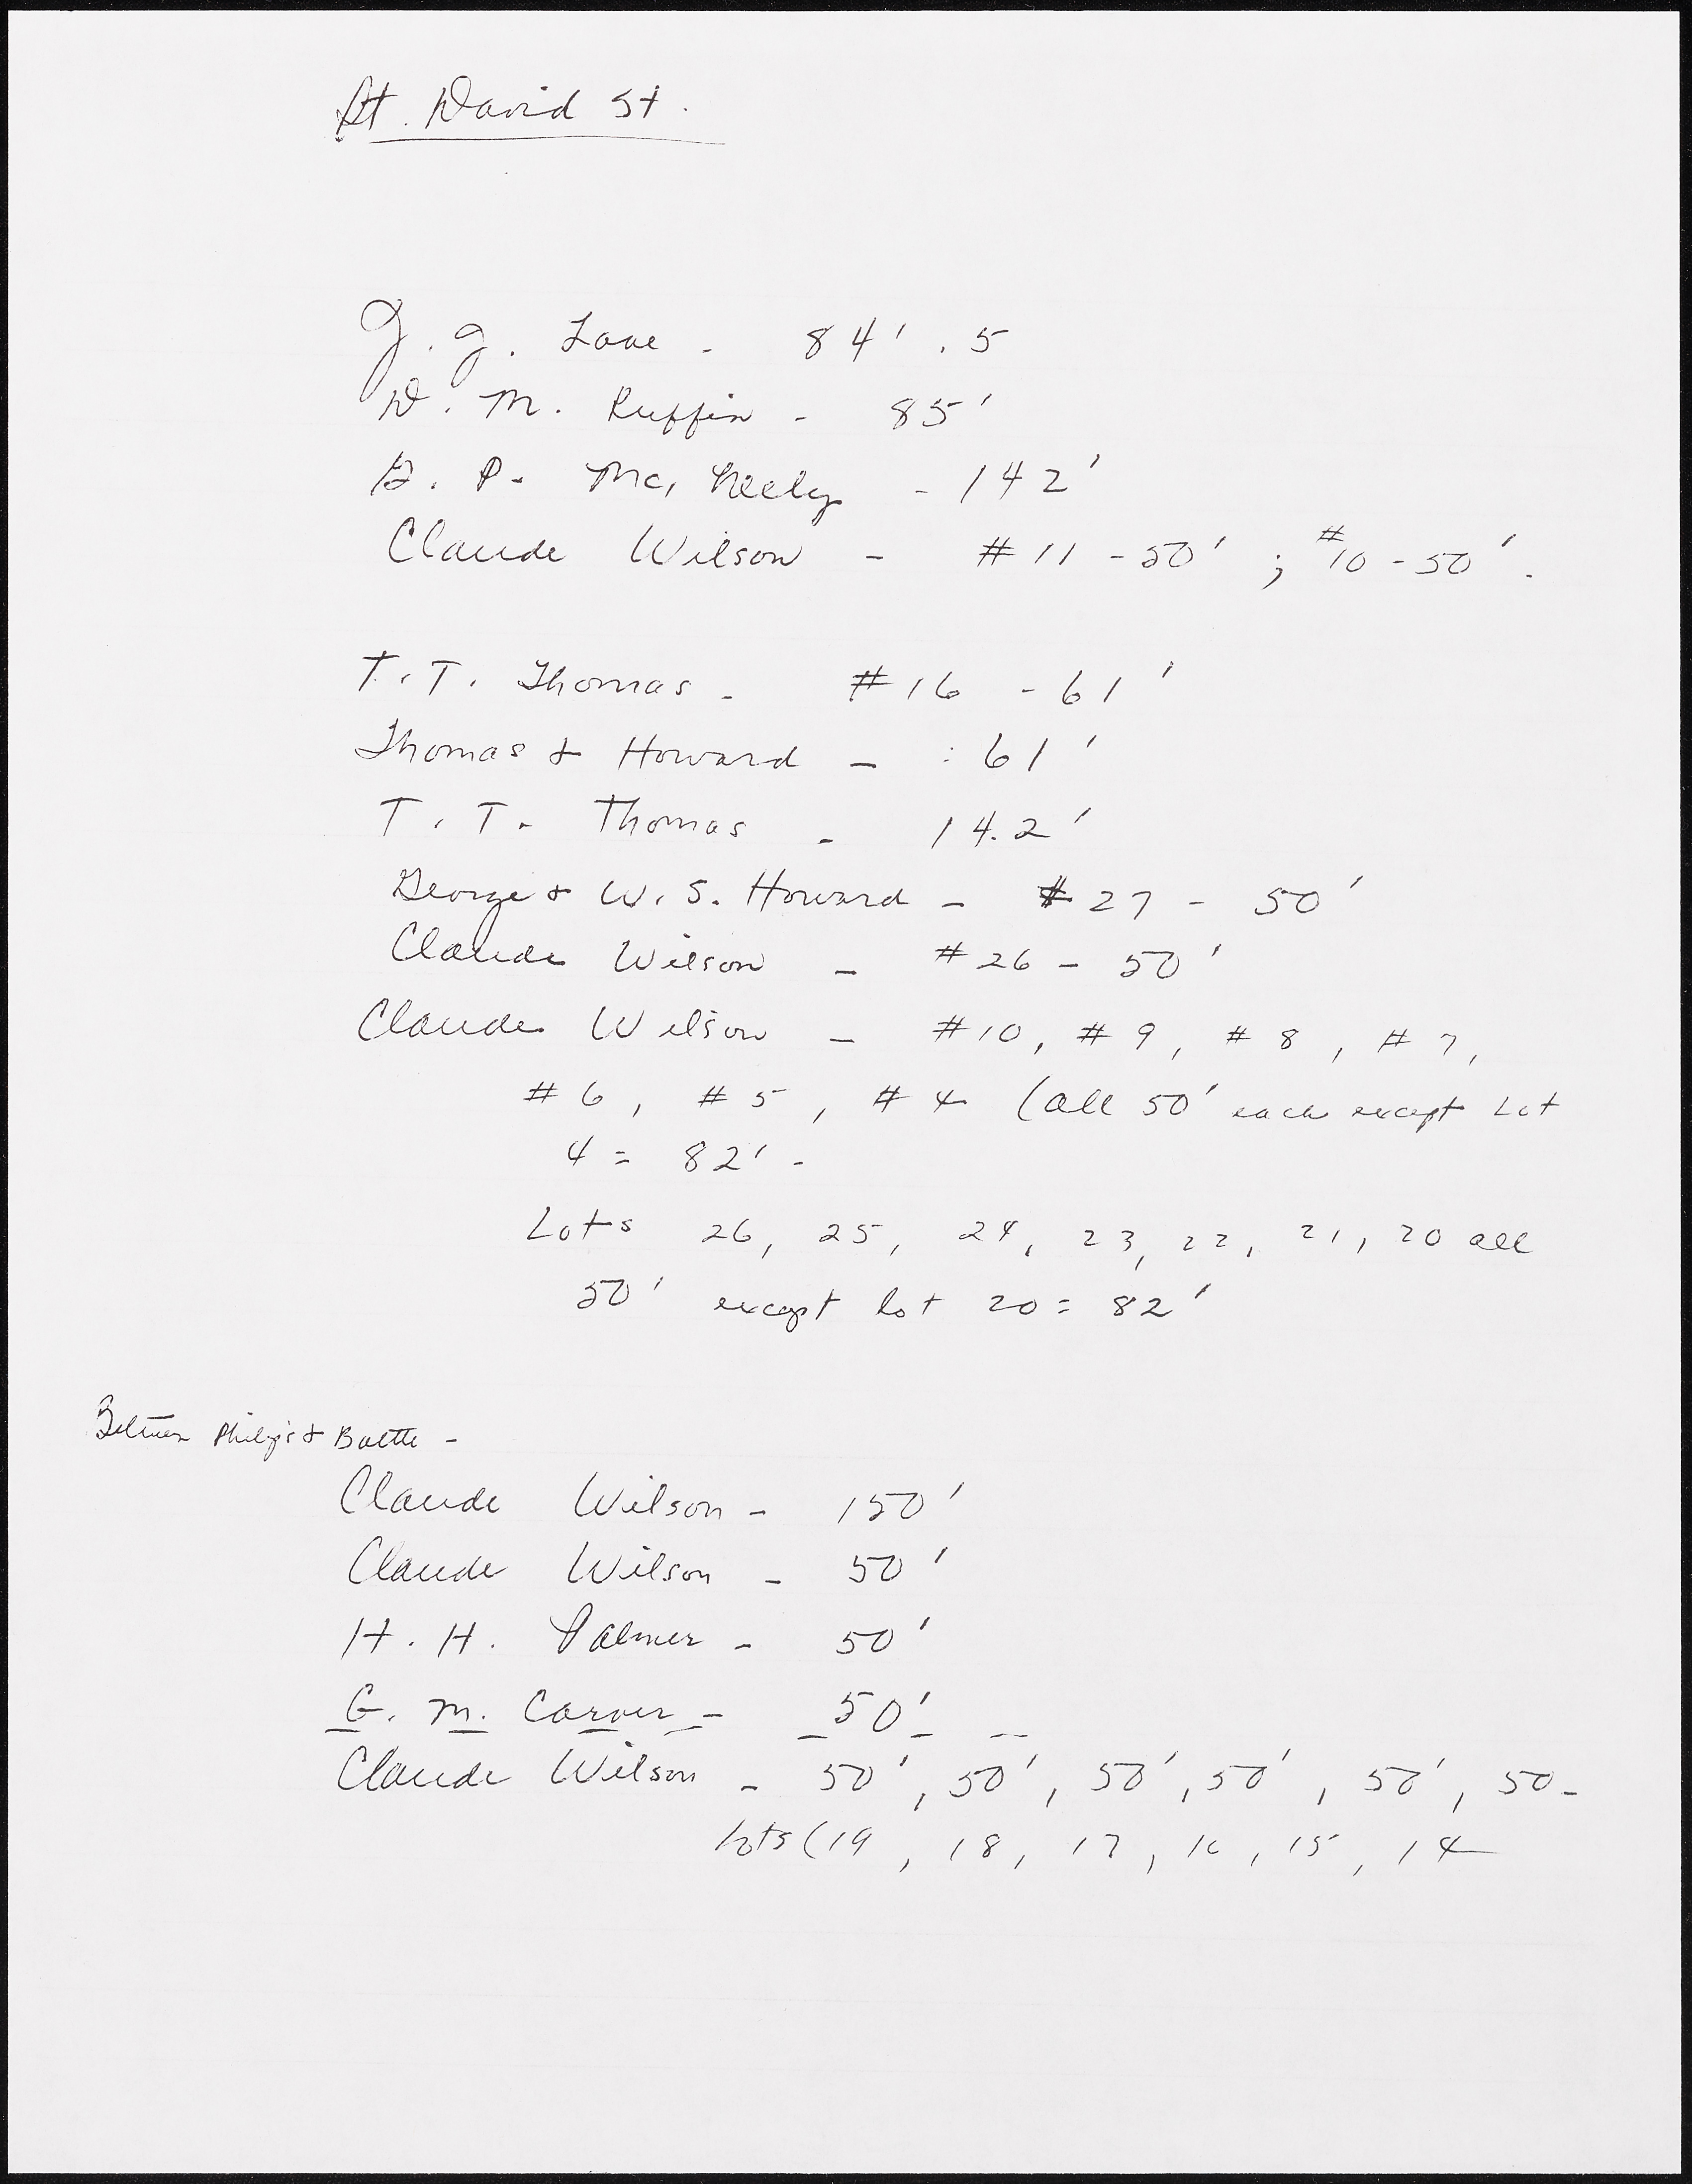 St. David St.
J. J. Love - 84' .5
D. M. Ruffin - 85'
G. P. Mc, Neely - 142'
Claude Wilson - #11 - 50' ; #10 - 50'.
T. T. Thomas - #16 - 61'
Thomas & Howard - : 61'
T. T. Thomas - 14.2'
George & W. S. Howard - #27 - 50'
Claude Wilson - #26 - 50'
Claude Wilson - #10, #9, #8, #7,
#6, #5, #4 (all 50' each except Lot
4 = 82' -
Lots 26, 25, 24, 23, 22, 21, 20 all
50' except lot 20 = 82'
Between Philips & Battle -
Claude Wilson - 150'
Claude Wilson - 50'
H. H. Palmer - 50'
G. M. Carver - 50'
Claude Wilson - 50', 50', 50', 50', 50', 50 -
lots (19, 18, 17, 16, 15, 14